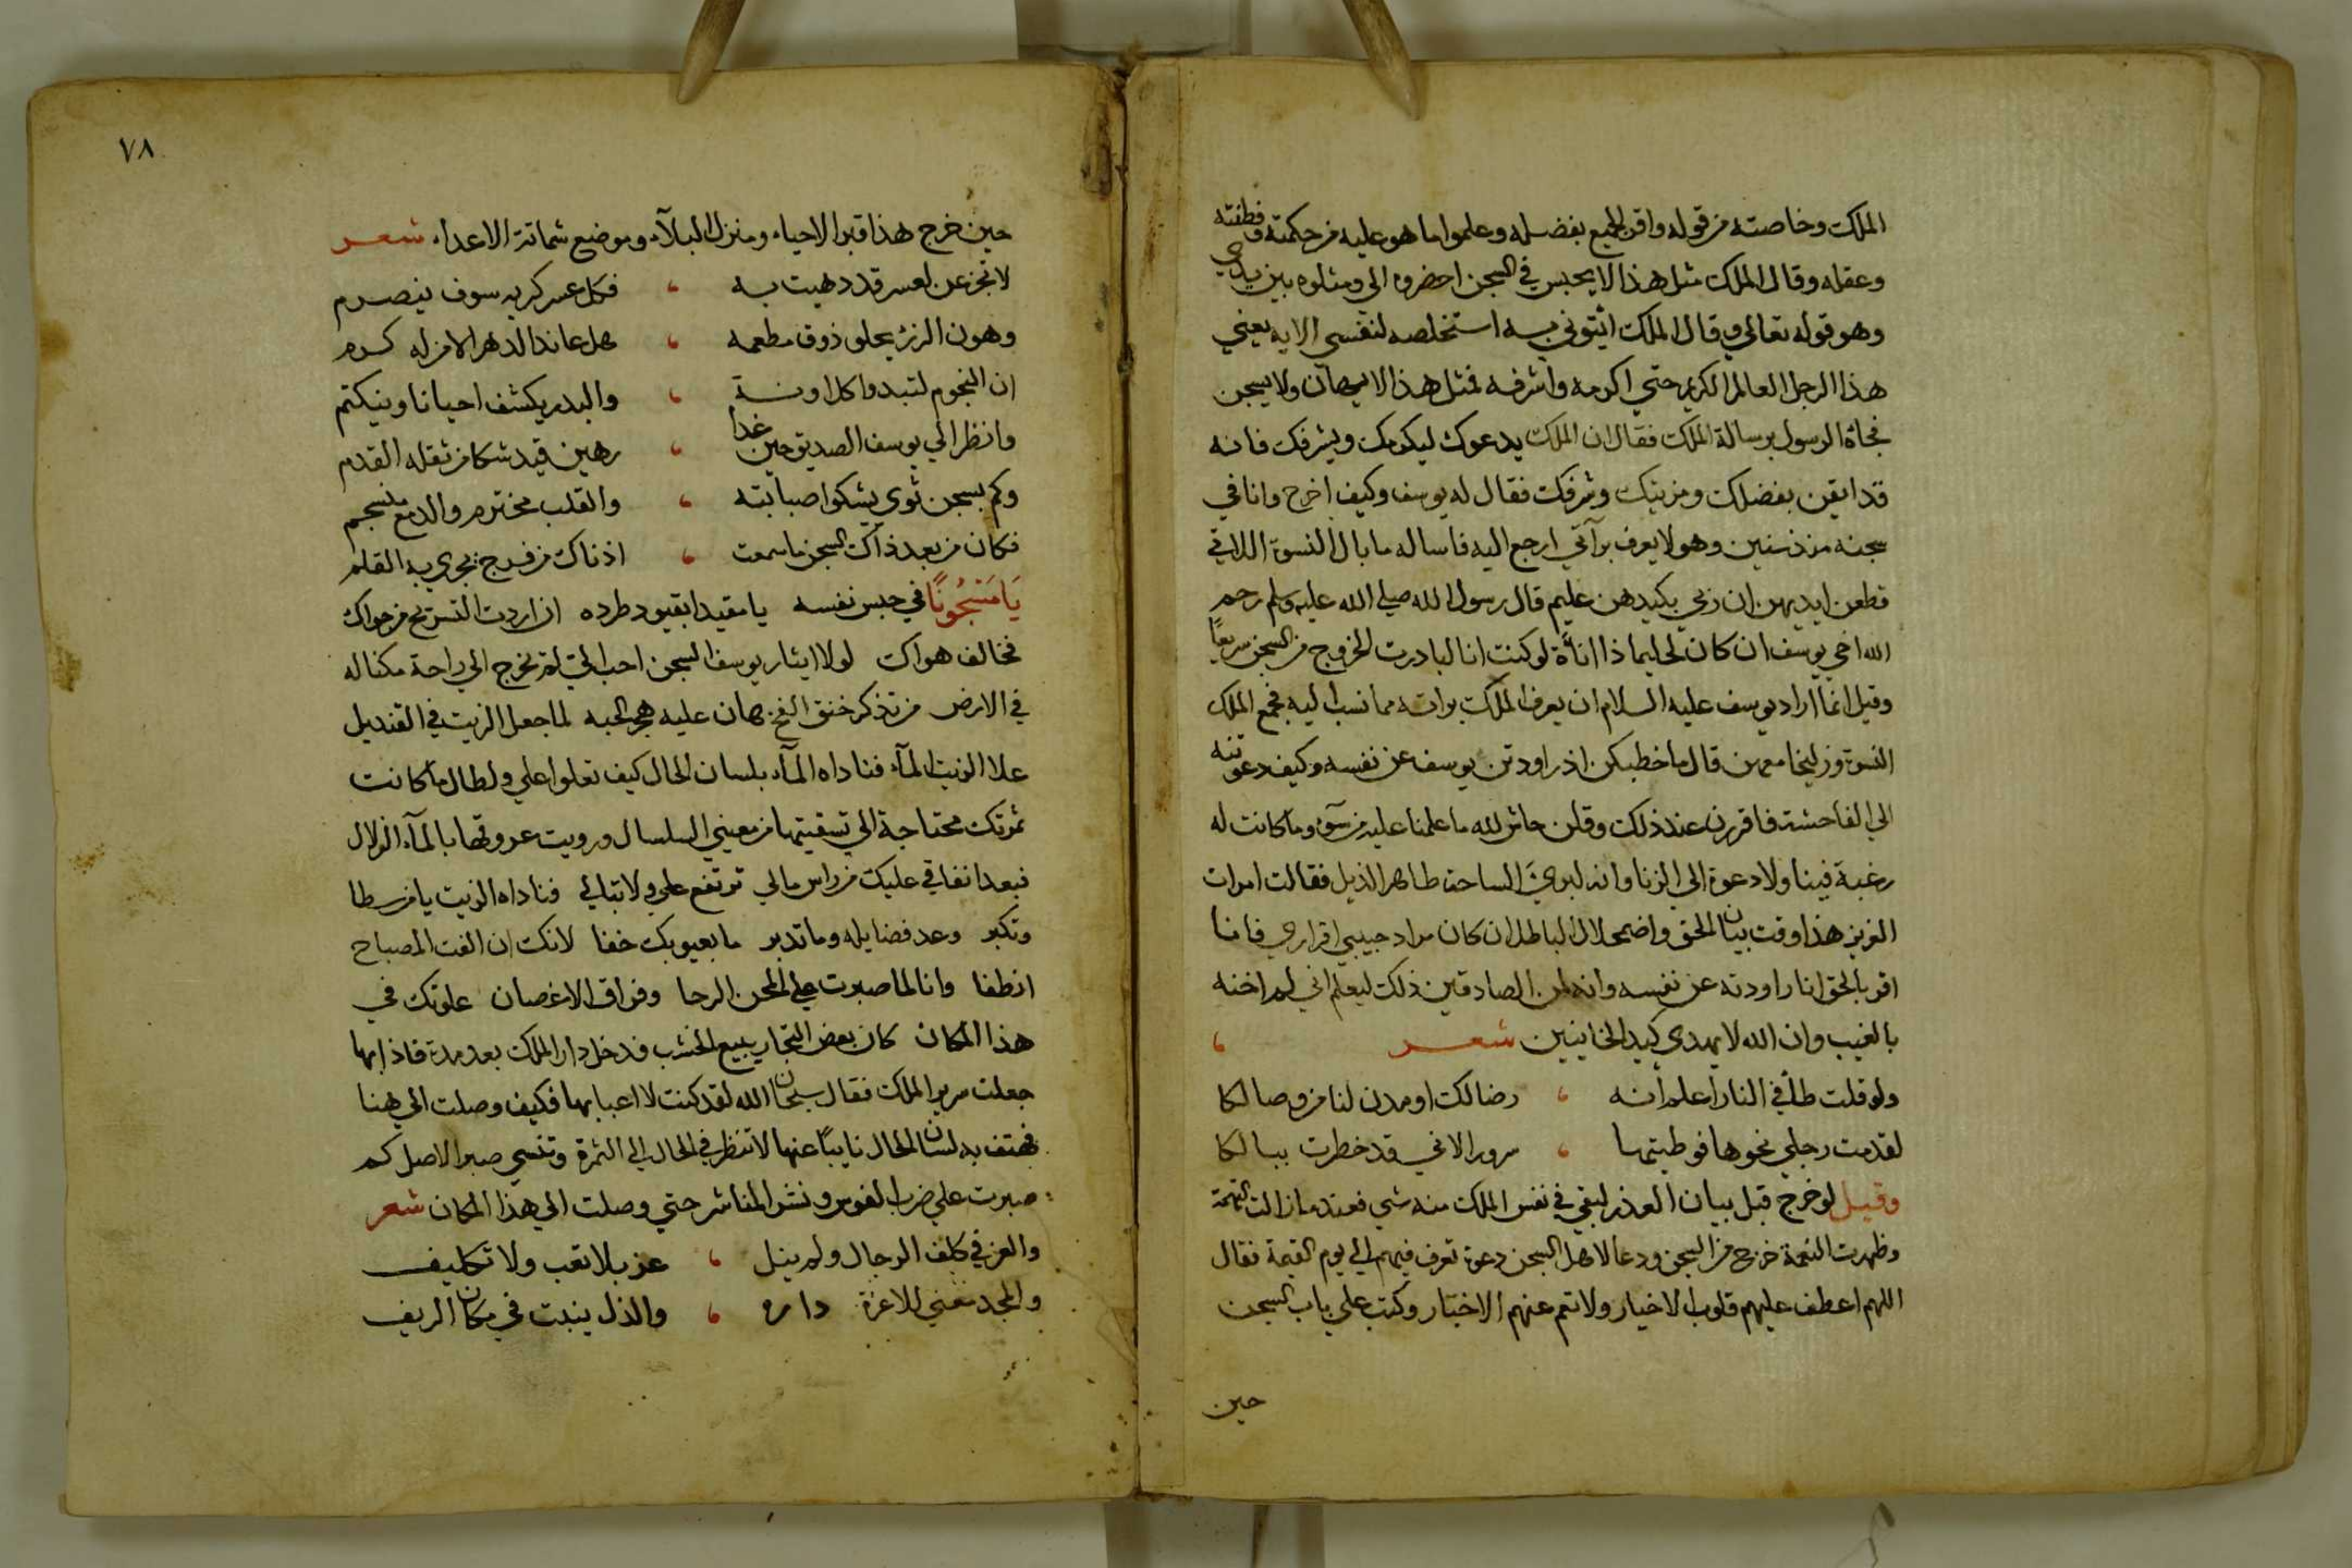 الملك وخاصته من قوله واقر الجميع بفضله وعلموا ما هو عليه من حكمته وفطنته
وعقله وقال الملك مثل هذا لا يحبس في السجن احضروه الي ومثلوه بين يدي
وهو قوله تعالي وقال الملك ائتوني به استخلصه لنفسي الايه يعني
هذا الرجل العالم الكريم حتي اكرمه واشرفه فمثل هذا لا يهان ولا يسجن
فجاة الرسول برسالة الملك فقال ان الملك يدعوك ليكرمك ويشرفك فانه
قد ايقن بفضلك ومزيتك وشرفك فقال له يوسف وكيف اخرج وانا في
سجنه منذ سنين وهو لا يعرف برآتي ارجع اليه فاساله ما بال النسوة اللاتي
قطعن ايديهن ان ربي بكيدهن عليم قال رسول الله صلي الله عليه وسلم رحم
الله اخي يوسف ان كان لحليما ذا اناة لو كنت انا لبادرت لخروج من السجن سريعاً
وقيل انما اراد يوسف عليه السلام ان يعرف الملك براته مما نسب اليه فجمع الملك
النسوة وزليخا معهن قال ما خطبكن اذ راودتن يوسف عن نفسه وكيف دعوتنه
الي الفاحشة فاقررن عند ذلك وقلن حاش لله ما علمنا عليه من سوء وما كانت له
رغبة فينا ولا دعوة الي الزنا وانه لبري الساحة طاهر الذيل فقالت امرات
العزيز هذا وقت بيان الحق واضمحلال الباطل ان كان مراد حبيبي اقراري فانا
اقر بالحق انا راودته عن نفسه وانه لمن الصادقين ذلك ليعلم اني لم اخنه
بالغيب وان الله لا يهدي كيد الخاينين شعر
ولو قلت طأ في النار اعلم أنه ، رضا لك او مدن لنا من وصالكا
لقدمت رجلي نحوها فوطيتها ، سرورا لاني قد خطرت ببالكا
وقيل لو خرج قبل بيان العذر لبقي في نفس الملك منه شي فعندما زالت التهمة
وظهرت النعمة خرج من السجن ودعا لاهل السجن دعوة تعرف فيهم الي يوم القيمة فقال
اللهم اعطف عليهم قلوب الاخيار ولا تعم عنهم الاخبار وكتب علي باب السجن
حين
٧٨
حين خرج هذا قبر الاحياء ومنزل البلآء وموضع شماتة الاعداء شعر
لا تجزعن لعسر قد دهيت به ، فكل عسر كربه سوف ينصرم
وهون الرزء يحلو ذوق مطعمه ، هل عاند الدهر الا من له كرم
ان النجوم لتبدوا كل اونة ، والبدر يكشف احيانا وينكتم
وانظر الي يوسف الصديق حين غدا ، رهين قيد شكا من ثقله القدم
وكم بسجن ثوي يشكوا صبابته ، والقلب مخترم والدمع منسجم
فكان من بعد ذاك السجن ما سمعت ، اذناك من فرج يجري به القلم
يَا مَسْجُونًا في حبس نفسه يا مقيدا بقيود طرده ان اردت التسريح من هواك
فخالف هواك لولا ايثار يوسف السجن احب الي لم يخرج الي راحة مكنا له
في الارض من تذكر خنق الفخ هان عليه هجر الحبه لما جعل الزيت في القنديل
علا الزيت المآء فناداه المآء بلسان الحال كيف تعلوا علي ولطال ما كانت
ثمرتك محتاجة الي تسقيتها من معيني السلسال ورويت عروقها بالمآء الزلال
فبعد انفاقي عليك من راس مالي ترتفع علي ولا تبالي فناداه الزيت يا من سطا
وتكبر وعد فضايله وما تدبر ما بعيوبك خفا لانك ان الفت المصباح
انطفا وانا لما صبرت علي طحن الرحا وفراق الاغصان علوتك في
هذا المكان كان بعض التجار يبيع الخشب فدخل دار الملك بعد مدة فاذا بها
جعلت سرير الملك فقال سبحان الله لقد كنت لا اعبا بها فكيف وصلت الي هنا
فهتف به لسان الحال نايباً عنها لا تنظر في الحال الي الثمرة وتنسي صبر الاصل كم
صبرت علي ضرب الفوس ونشر المناشر حتي وصلت الي هذا المكان شعر
والعز في كلف الرجال ولم ينل ، عز بلا تعب ولا تكليف
والمجد مغني للاعزة داره ، والذل ينبت في مكان الريف